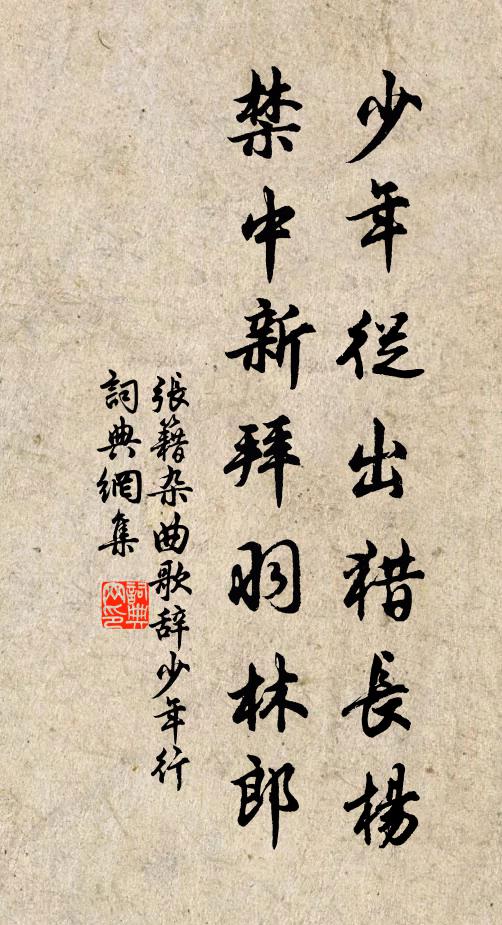 少年從出猎長楊
禁中新拜羽林郎
張籍杂曲歌辞少年行
詞典網集
詞典网印